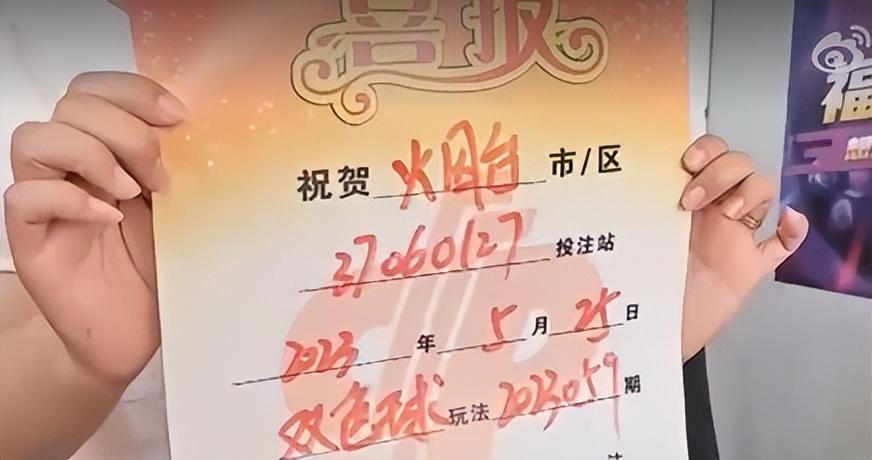 喜报
祝贺 烟台 市/区
37060127 投注站
2023 年 5 月 25 日
双色球 玩法 2023059 期
福